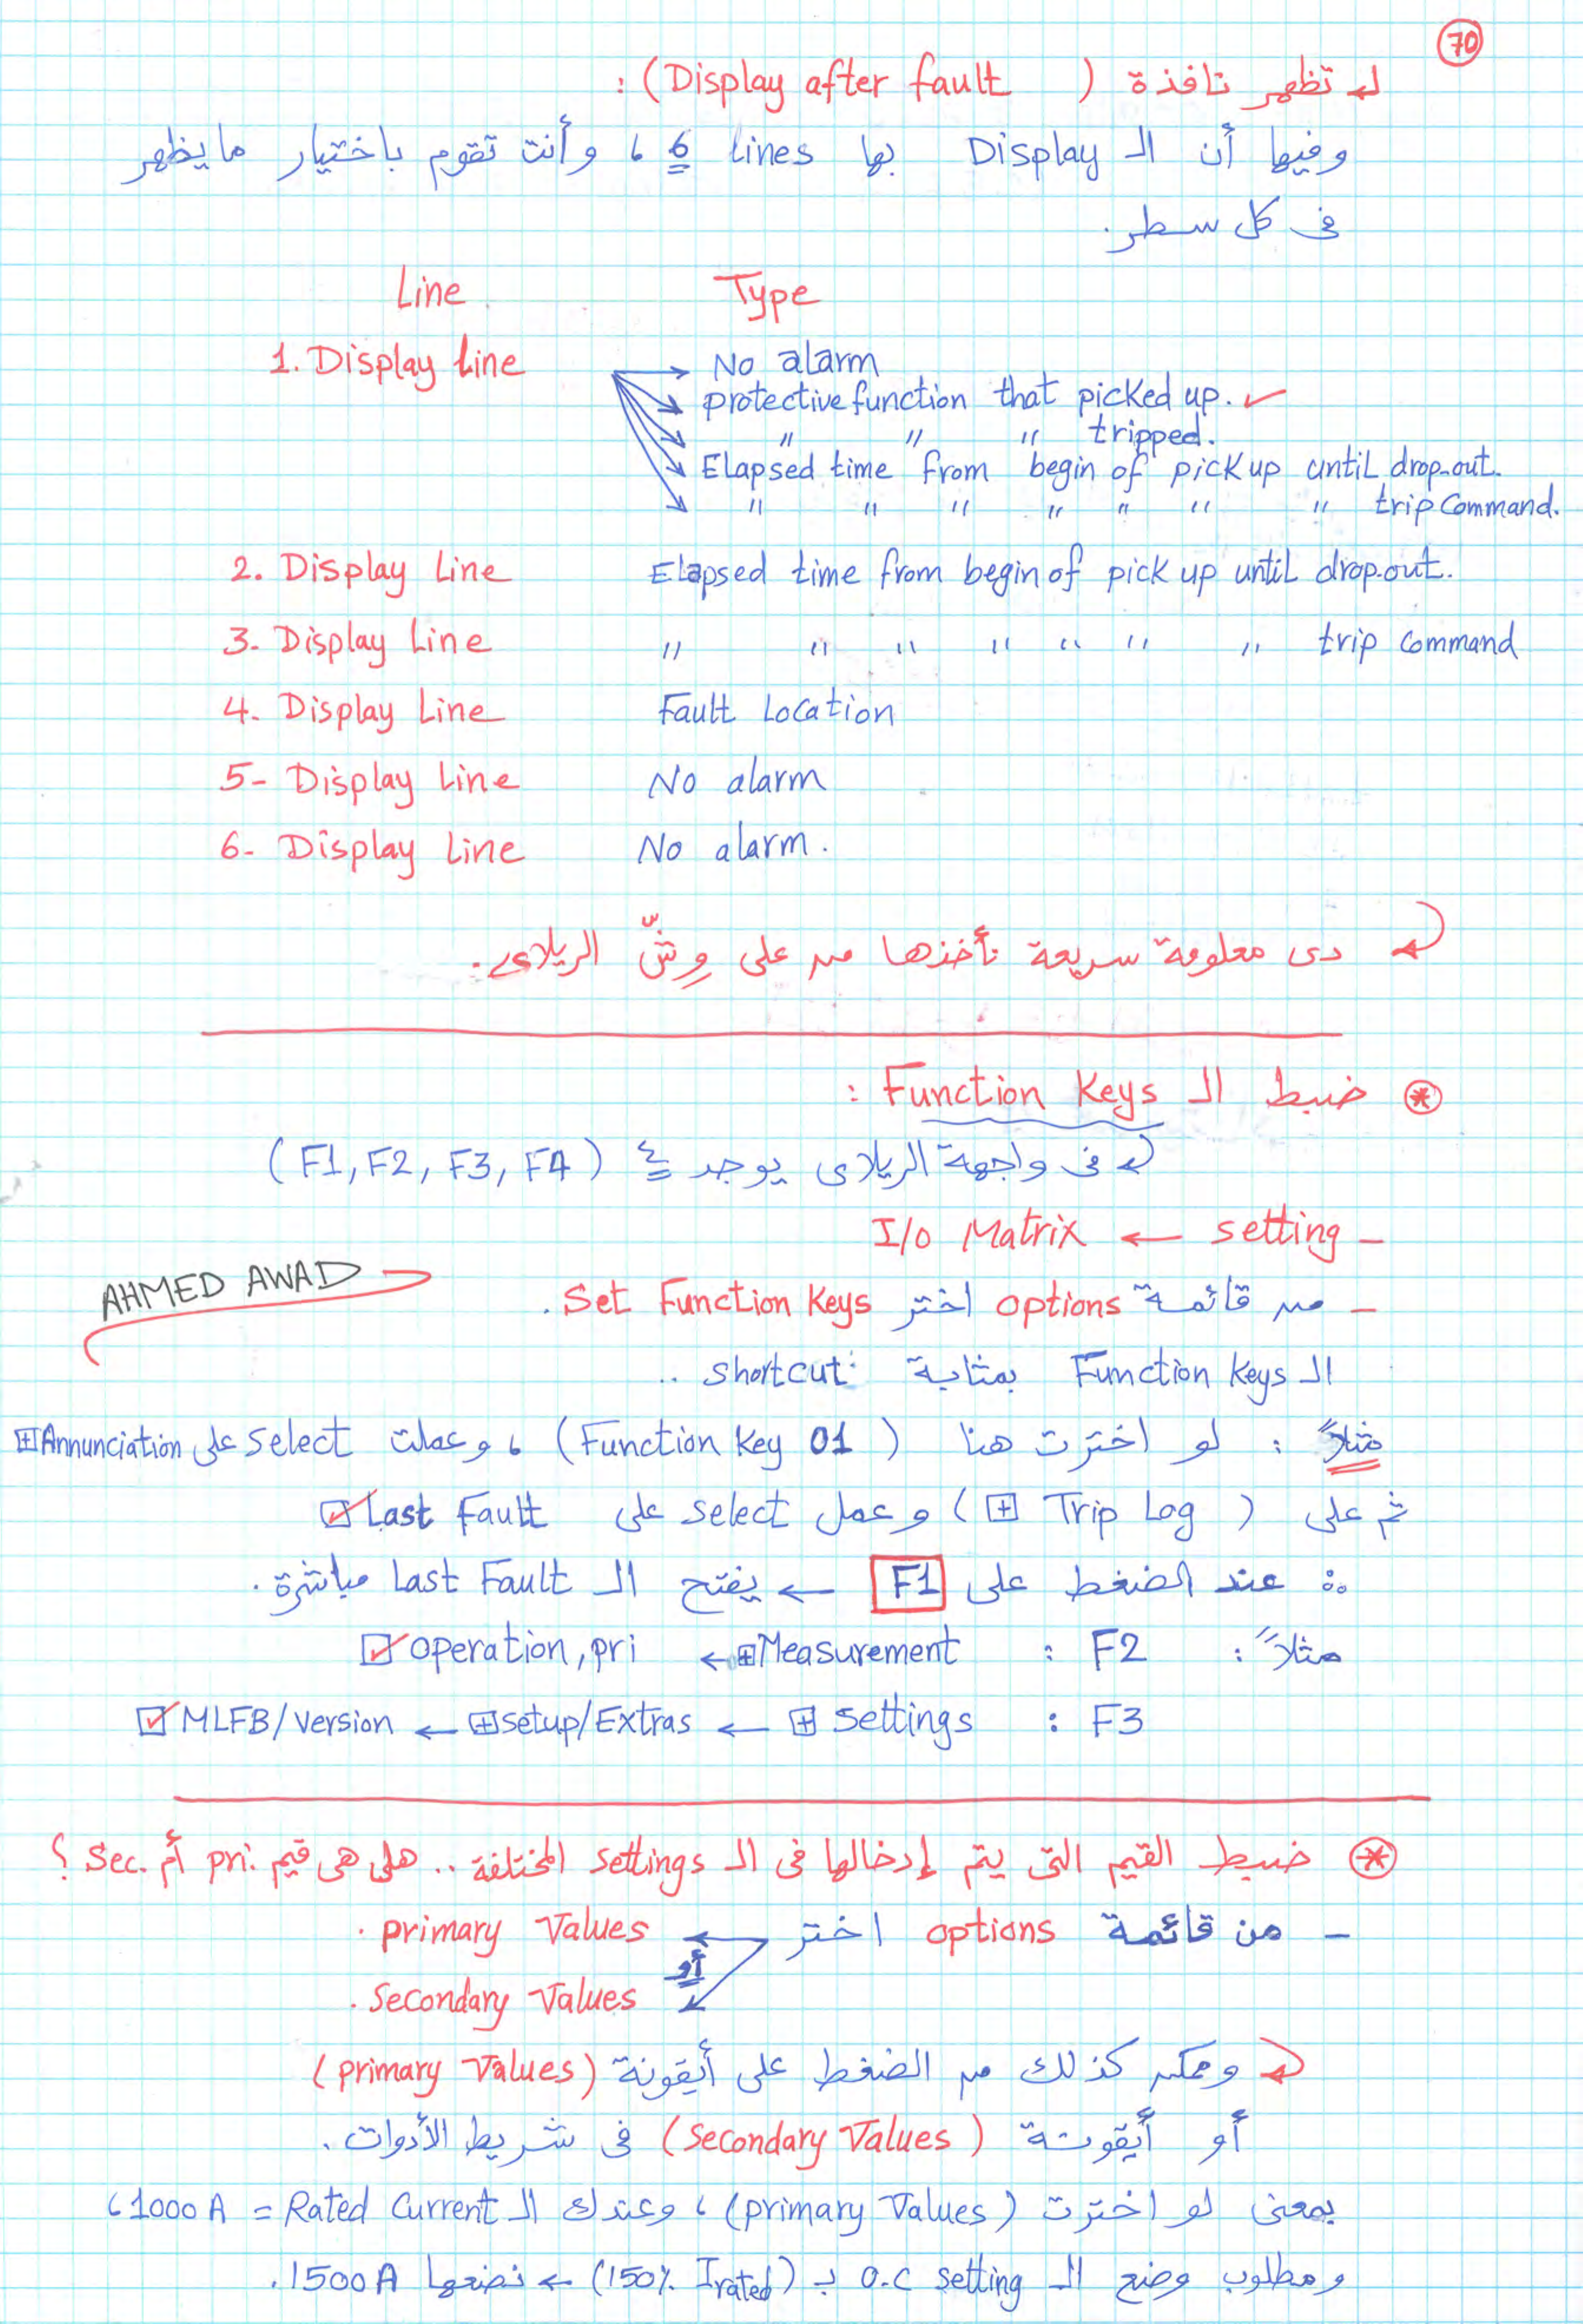 70
تظهر نافذة (Display after fault) :
وفيها أن الـ Display بها 6 lines ، وأنت تقوم باختيار ما يظهر
فى كل سطر.
Line Type
1. Display Line No alarm
protective function that picked up. ✓
" " " tripped.
Elapsed time from begin of pick up until drop-out.
" " " " " " " trip Command.
2. Display Line Elapsed time from begin of pick up until drop.out.
3- Display Line " " " " " " " trip Command
4- Display Line Fault Location
5- Display Line No alarm
6- Display Line No alarm.
دى معلومة سريعة تأخذها من على وِشّ الريلاى.
* ضبط الـ Function Keys :
فى واجهة الريلاى يوجد ٤ (F1, F2, F3, F4)
- setting ← I/O Matrix
- من قائمة options اختر Set Function Keys.
AHMED AWAD
الـ Function Keys بمثابة shortcut ..
مثلاً : لو اخترت هنا (Function Key 01) ، وعملت select على ⊞ Annunciation
ثم على (⊞ Trip Log) وعمل select على ☑ Last Fault
∴ عند الضغط على F1 ← يفتح الـ Last Fault مباشرة.
مثلاً : F2 : ⊞ Measurement ← ☑ operation, pri
F3 : ⊞ Settings ← ⊞ setup/Extras ← ☑ MLFB/version
* ضبط القيم التى يتم إدخالها فى الـ settings المختلفة .. هل هى قيم pri. أم sec. ؟
- من قائمة options اختر ← primary Values.
أو
← Secondary Values.
وممكن كذلك من الضغط على أيقونة (primary Values)
أو أيقونة (Secondary Values) فى شريط الأدوات.
بمعنى لو اخترت (primary Values) ، وعندك الـ Rated Current = 1000 A ،
ومطلوب وضع الـ O.C setting بـ (150% Irated) ← نضعها 1500 A.